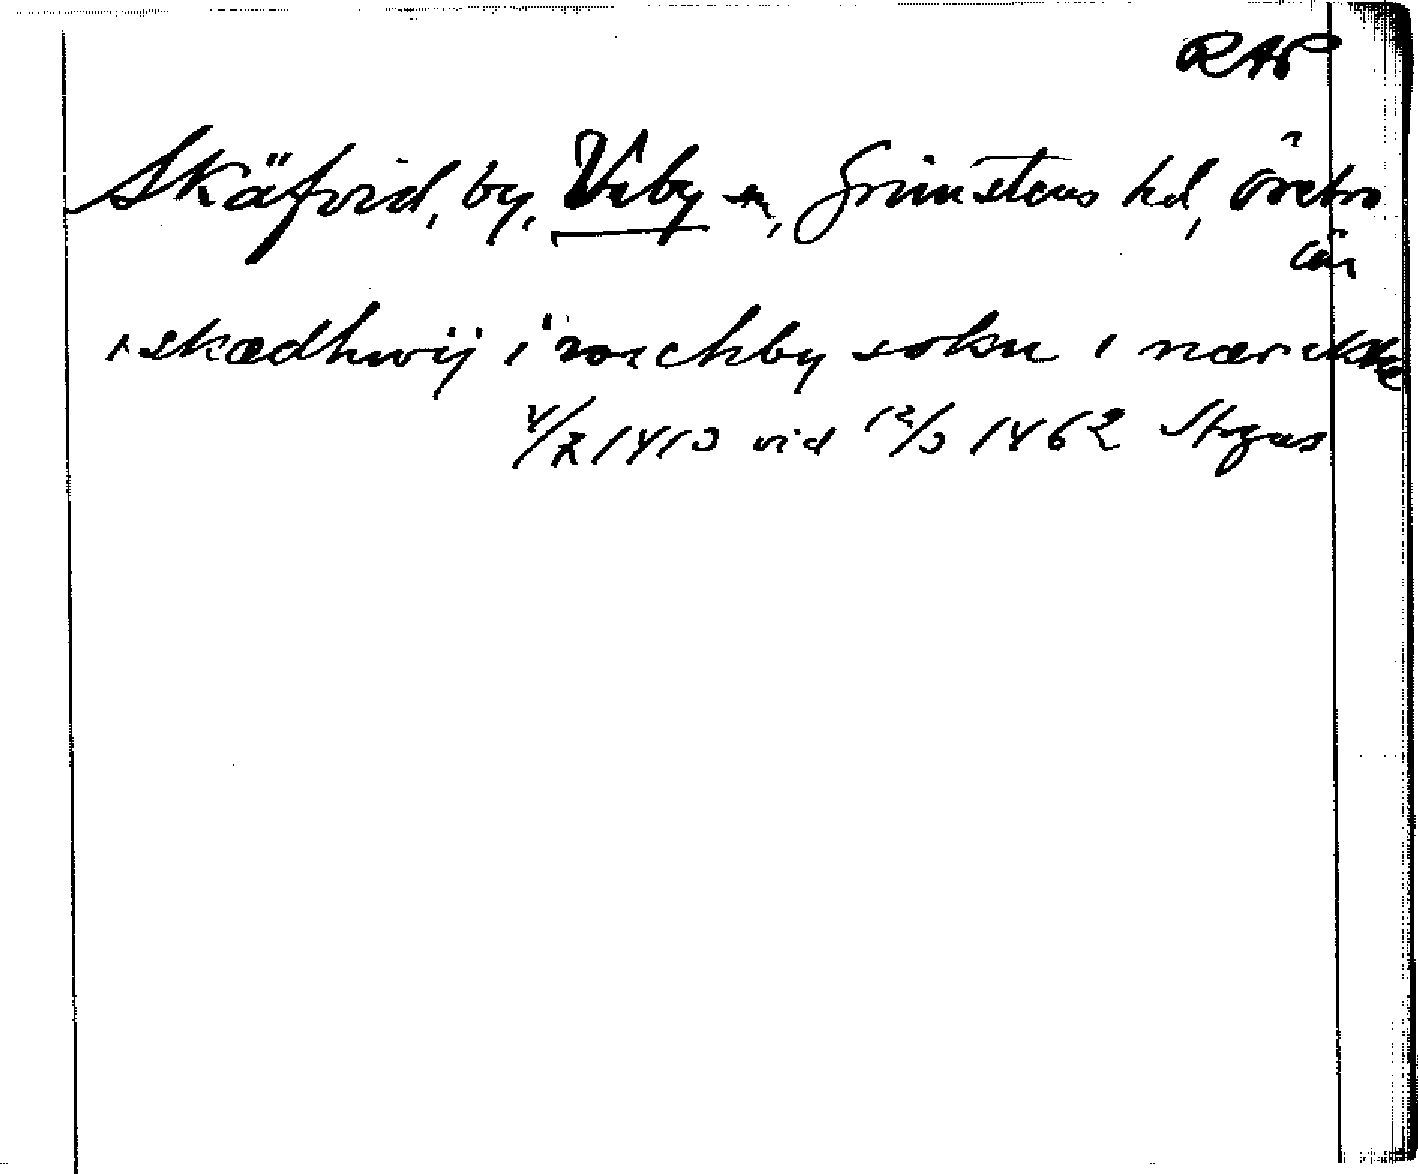 RAP
Skäfvid, by, Viby sn, Grimstens hd, Örebro
län
i skædhwij i
wichby sokn i nærikke
4/7 1413 vid 12/3 1462 Stegeus